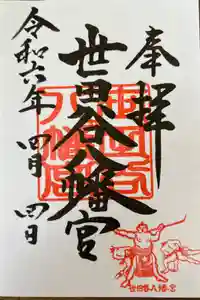 奉拝
世田谷八幡宮
令和六年 四月 四日
世田谷八幡宮